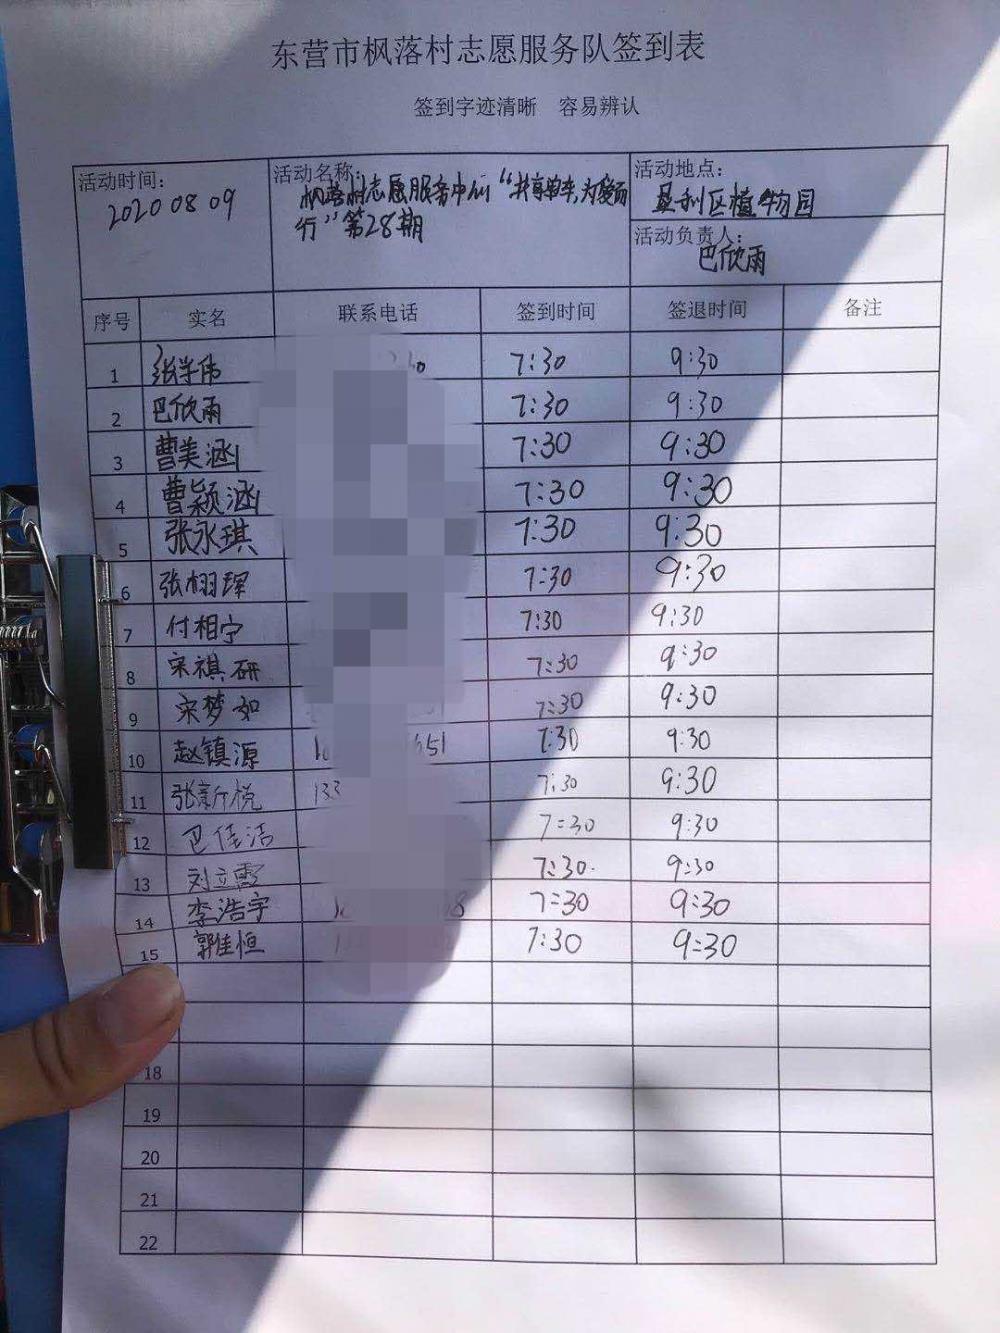 东营市枫落村志愿服务队签到表
签到字迹清晰 容易辨认
活动时间: 2020 08 09
活动名称: 枫落村志愿服务中心“共享单车,为爱而
行”第28期
活动地点: 垦利区植物园
活动负责人: 巴欣雨
序号 实名 联系电话 签到时间 签退时间 备注
1 张学伟 7:30 9:30
2 巴欣雨 7:30 9:30
3 曹美涵 7:30 9:30
4 曹颖涵 7:30 9:30
5 张永琪 7:30 9:30
6 张栩珲 7:30 9:30
7 付相宁 7:30 9:30
8 宋祺研 7:30 9:30
9 宋梦如 7:30 9:30
10 赵镇源 651 7:30 9:30
11 张新悦 133 7:30 9:30
12 巴佳洁 7:30 9:30
13 刘立霞 7:30 9:30
14 李浩宇 8 7:30 9:30
15 郭佳恒 7:30 9:30
18
19
20
21
22